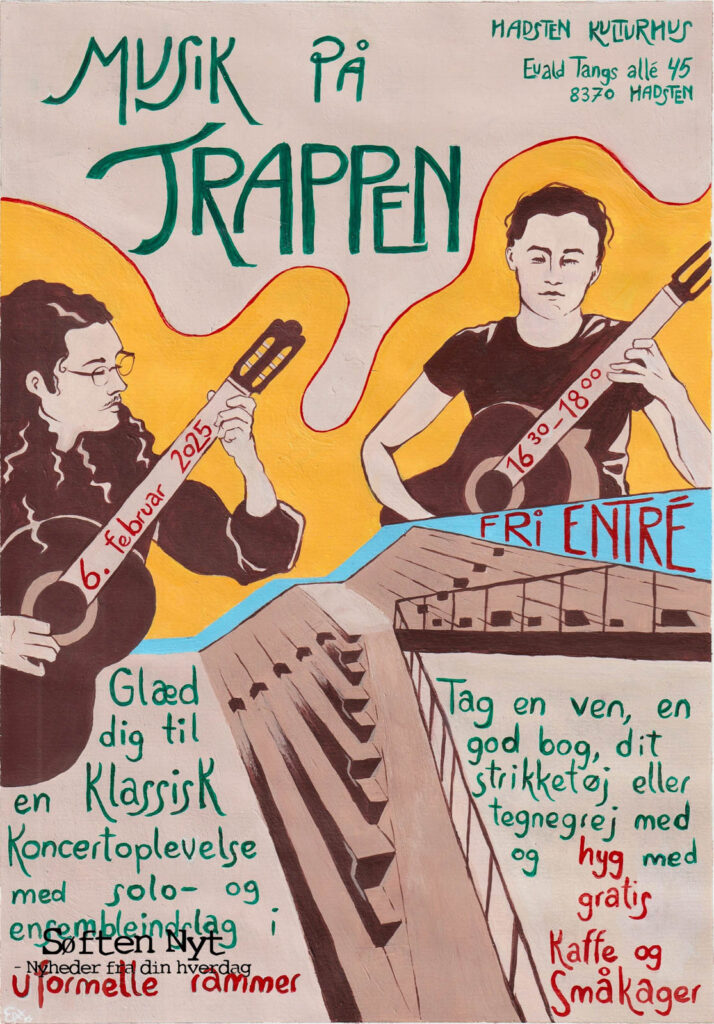 MUSIK PÅ
TRAPPEN
HADSTEN KULTURHUS
Evald Tangs allé 45
8370 HADSTEN
6. februar 2025
16³⁰-18⁰⁰
FRI ENTRÉ
Glæd
dig til
en Klassisk
Koncertoplevelse
med solo- og
ensembleindslag i
uformelle rammer
Tag en ven, en
god bog, dit
strikketøj eller
tegnegrej med
og hyg med
gratis
Kaffe og
Småkager
Søften Nyt
- Nyheder fra din hverdag